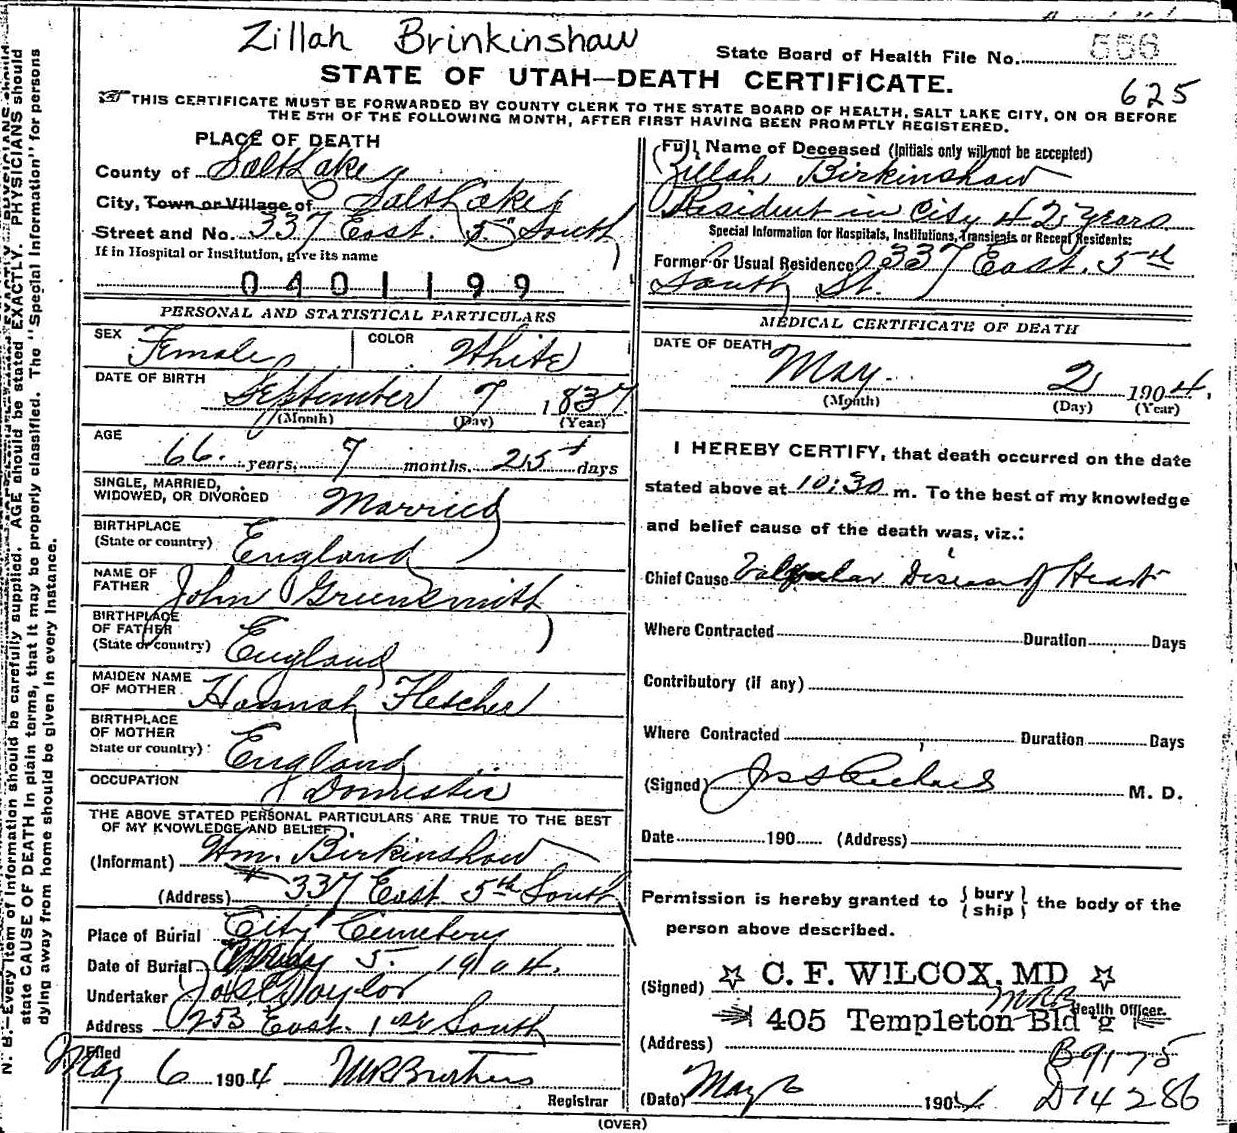 Zillah Brinkinshaw
State Board of Health File No. 556
STATE OF UTAH—DEATH CERTIFICATE.
625
THIS CERTIFICATE MUST BE FORWARDED BY COUNTY CLERK TO THE STATE BOARD OF HEALTH, SALT LAKE CITY, ON OR BEFORE
THE 5TH OF THE FOLLOWING MONTH, AFTER FIRST HAVING BEEN PROMPTLY REGISTERED.
PLACE OF DEATH
County of Salt Lake
City, Town or Village of Salt Lake
Street and No. 337 East. 5" South
If in Hospital or Institution, give its name
0401199
PERSONAL AND STATISTICAL PARTICULARS
SEX Female COLOR White
DATE OF BIRTH
September 7 1837
(Month) (Day) (Year)
AGE
66 years, 7 months, 25 days
SINGLE, MARRIED,
WIDOWED, OR DIVORCED Married
BIRTHPLACE
(State or country) England
NAME OF
FATHER John Greensmith
BIRTHPLACE
OF FATHER
(State or country) England
MAIDEN NAME
OF MOTHER Hannah Fletcher
BIRTHPLACE
OF MOTHER
State or country) England
OCCUPATION Domestic
THE ABOVE STATED PERSONAL PARTICULARS ARE TRUE TO THE BEST
OF MY KNOWLEDGE AND BELIEF
(Informant) Wm. Birkinshaw
(Address) 337 East 5th South
Place of Burial City Cemetery
Date of Burial May 5. 1904.
Undertaker Jos. E. Taylor
Address 253 East. 1st South
Filed
May 6 1904
Registrar
Full Name of Deceased (Initials only will not be accepted)
Zillah Birkinshaw
Resident in City 42 years
Special Information for Hospitals, Institutions, Transients or Recent Residents:
Former or Usual Residence 337 East. 5th
South St.
MEDICAL CERTIFICATE OF DEATH
DATE OF DEATH
May 2 1904.
(Month) (Day) (Year)
I HEREBY CERTIFY, that death occurred on the date
stated above at 10:30 m. To the best of my knowledge
and belief cause of the death was, viz.:
Chief Cause Valvular Disease of Heart
Where Contracted Duration Days
Contributory (if any)
Where Contracted Duration Days
(Signed) M. D.
Date 190 (Address)
Permission is hereby granted to { bury ship } the body of the
person above described.
(Signed) ☆ C. F. WILCOX, MD ☆
Health Officer.
405 Templeton Bld'g
(Address)
B9175
(Date) May 6 1904 D14286
(OVER)
N. B.—Every item of information should be carefully supplied. AGE should be stated EXACTLY. PHYSICIANS should
state CAUSE OF DEATH in plain terms, that it may be properly classified. The "Special Information" for persons
dying away from home should be given in every instance.